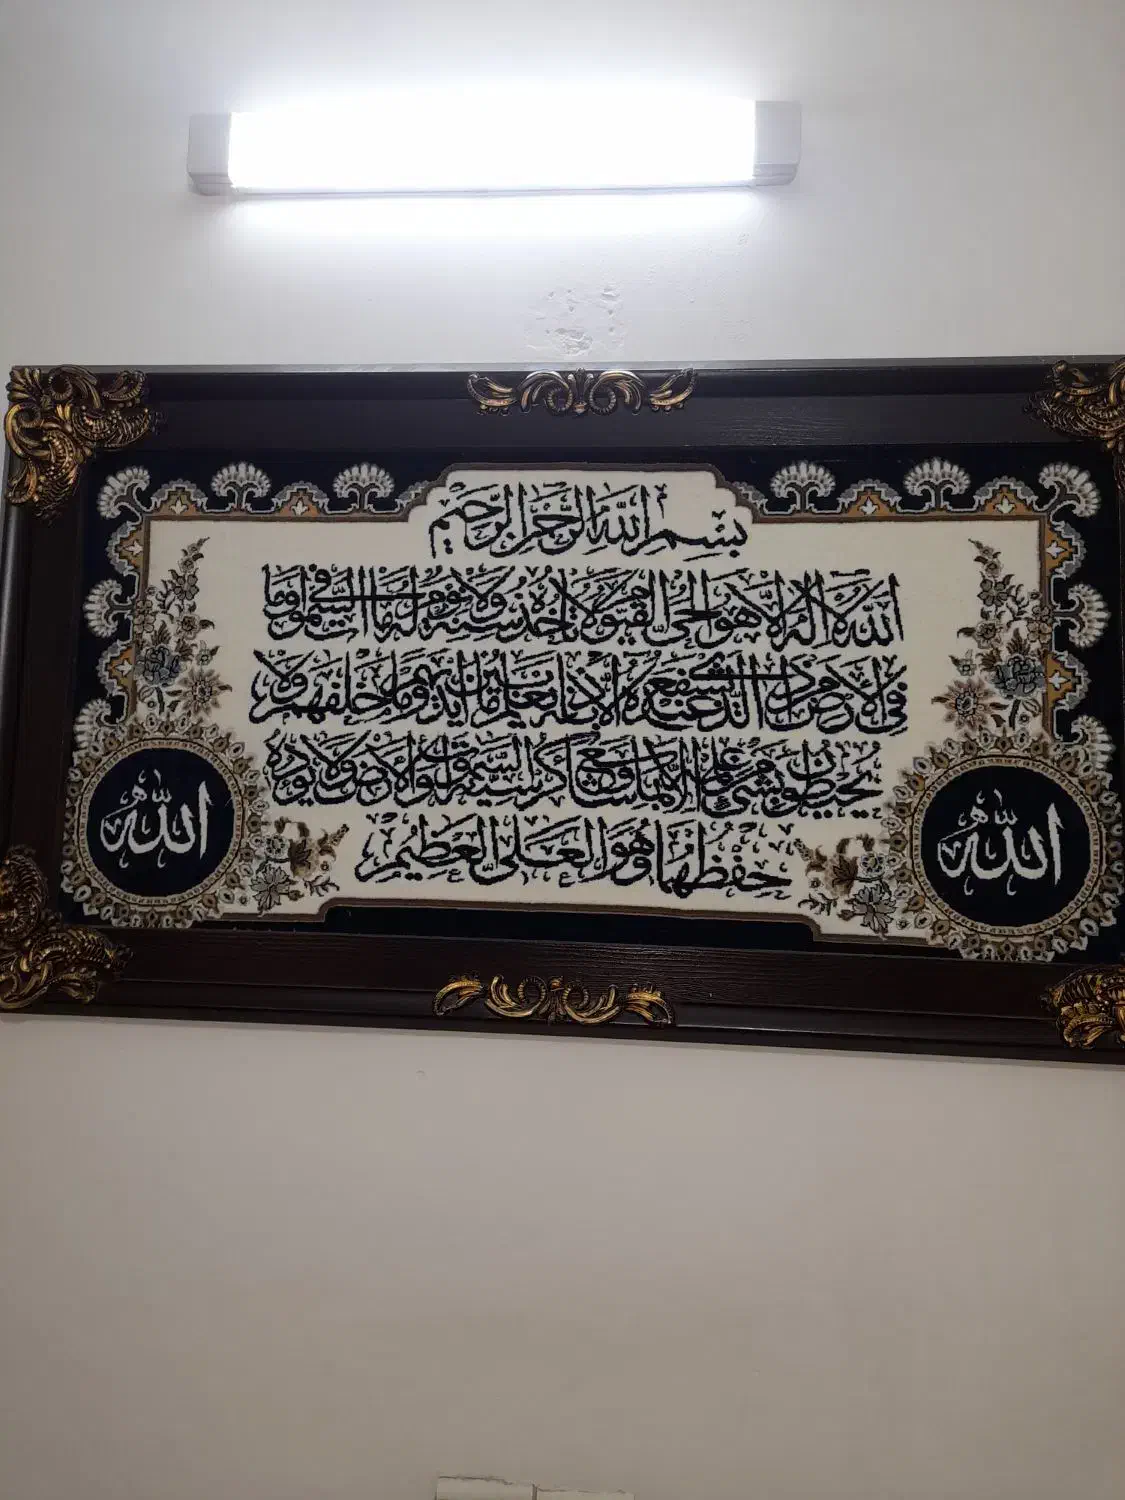 بِسْمِ اللَّهِ الرَّحْمَٰنِ الرَّحِيمِ
اللَّهُ لَا إِلَٰهَ إِلَّا هُوَ الْحَيُّ الْقَيُّومُ لَا تَأْخُذُهُ سِنَةٌ وَلَا نَوْمٌ لَهُ مَا فِي السَّمَاوَاتِ وَمَا
فِي الْأَرْضِ مَنْ ذَا الَّذِي يَشْفَعُ عِنْدَهُ إِلَّا بِإِذْنِهِ يَعْلَمُ مَا بَيْنَ أَيْدِيهِمْ وَمَا خَلْفَهُمْ وَلَا
يُحِيطُونَ بِشَيْءٍ مِنْ عِلْمِهِ إِلَّا بِمَا شَاءَ وَسِعَ كُرْسِيُّهُ السَّمَاوَاتِ وَالْأَرْضَ وَلَا يَئُودُهُ
حِفْظُهُمَا وَهُوَ الْعَلِيُّ الْعَظِيمُ
اللَّه
اللَّه